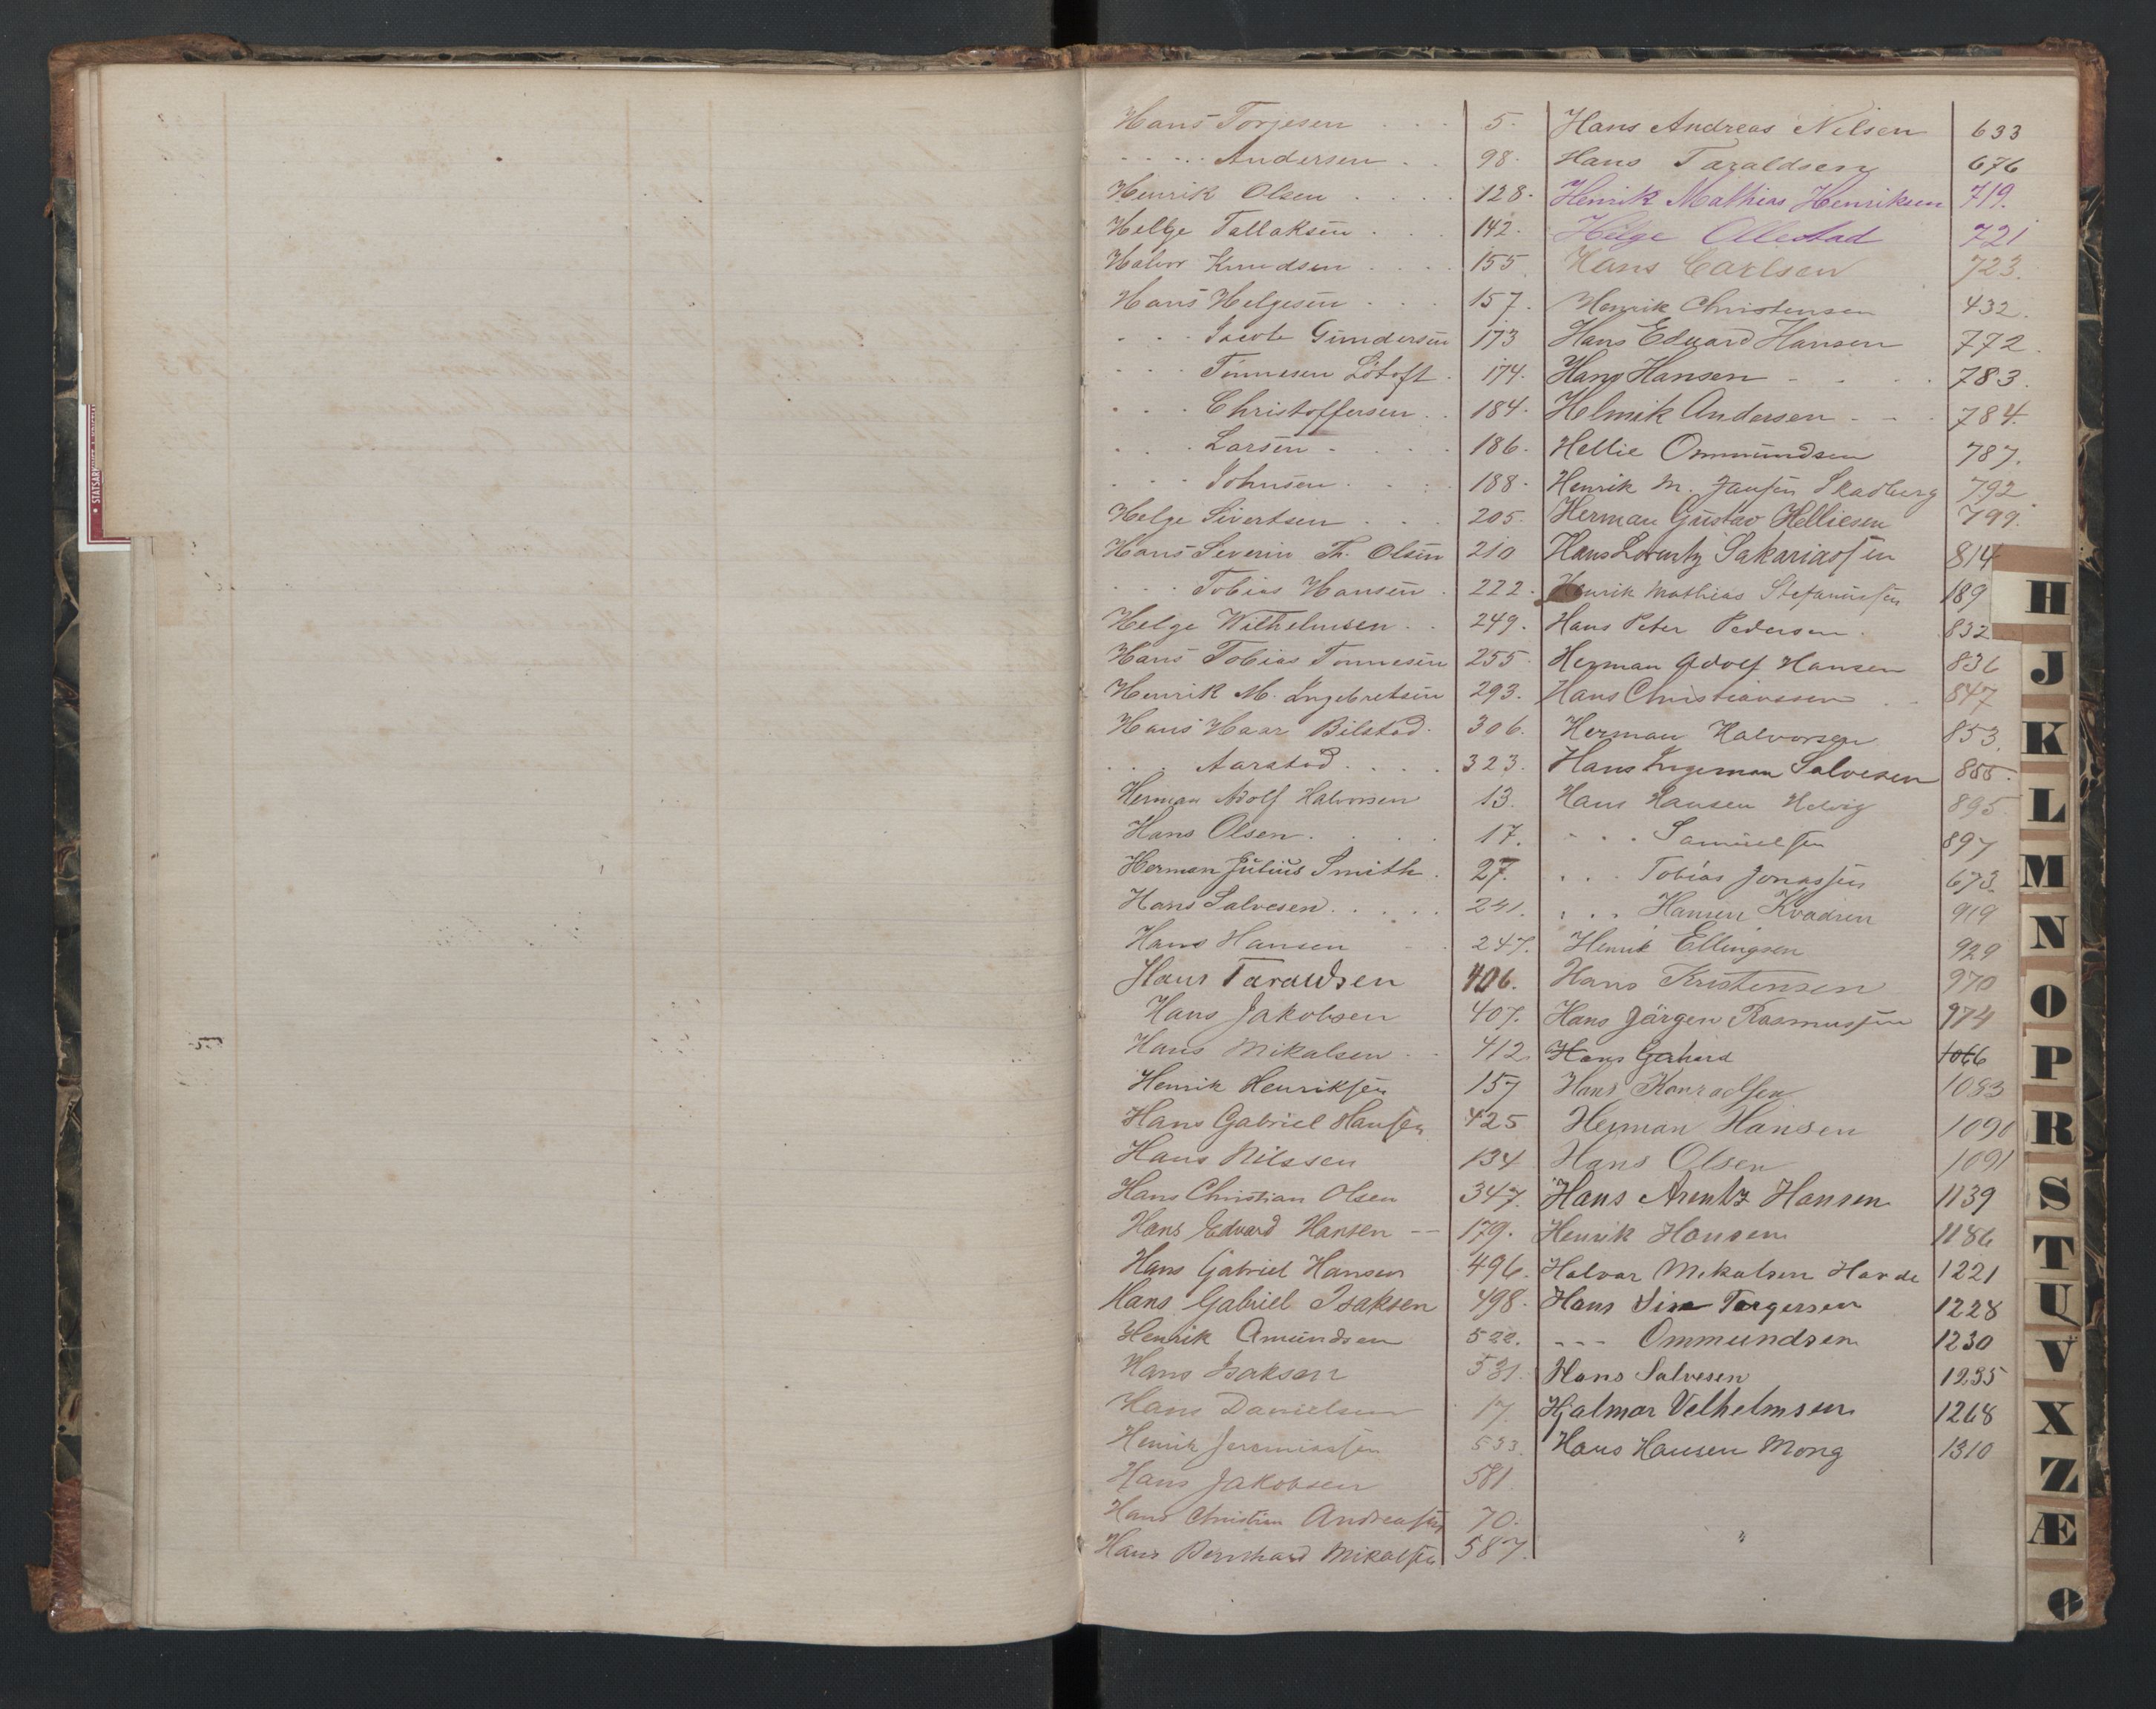 Hans Torjesen . . . 5.
. . . . Andersen . . 98.
Henrik Olsen . . . . 128.
Helge Tallaksen . . . 142.
Halvor Knudsen . . . . 155
Hans Helgesen . . . 157.
. . . Jacob Gundersen 173
. . . Tönnesen Lötoft . 174.
. . . Christoffersen . . 184.
. . . Larsen . . . . 186.
. . . Johnsen . . . . 188.
Helge Sivertsen . . . 205.
Hans Severin Th. Olsen 210
. . . Tobias Hansen . 222.
Helge Wilhelmsen . . 249.
Hans Tobias Tonnesen 255.
Henrik M. Ingebretsen 293.
Hans Haar Bilstad . 306.
. . . Aarstad . . . . 323.
Herman Adolf Halvorsen 13.
Hans Olsen . . . . 17.
Herman Julius Smith . 27.
Hans Salvesen . . . . . 241.
Hans Hansen - . 247.
Hans Taraldsen 406.
Hans Jakobsen 407.
Hans Mikalsen . . 412
Henrik Henriksen 157
Hans Gabriel Hansen 425
Hans Nilssen 134
Hans Christian Olsen 347.
Hans Edvard Hansen -- 179.
Hans Gabriel Hansen 496.
Hans Gabriel Isaksen 498.
Henrik Amundsen 522.
Hans Isaksen 531.
Hans Danielsen 17.
Henrik Jeremiassen 533.
Hans Jakobsen 581.
Hans Christian Andreassen 70.
Hans Bernhard Mikalsen 587.
Hans Andreas Nilsen 633
Hans Taraldsen 676
Henrik Mathias Henriksen 719.
Helge Ollestad 721
Hans Carlsen 723.
Henrik Christensen 432.
Hans Eduard Hansen 772.
Hans Hansen - . . . 783.
Helmik Andersen - - . 784.
Hellie Ommundsen 787.
Henrik M. Jansen Skadberg 792
Herman Gustav Helliesen 799.
Hans Lorentz Sakariassen 814
Henrik Mathias Stefanussen 189
Hans Peter Pedersen . 832
Herman Adolf Hansen 836
Hans Christianssen . . 847
Herman Halvorsen 853.
Hans Ingeman Salvesen 855.
Hans Hansen Helvig 895.
. . . Samuelsen 897
. . . Tobias Jonassen 673.
. . . Hansen Kvadsen 919
Henrik Ellingsen 929
Hans Kristensen 970
Hans Jørgen Rasmussen 974
Hans Gerhard 1066
Hans Konradsen 1083
Herman Hansen 1090
Hans Olsen 1091
Hans Arentz Hansen 1139
Henrik Hansen 1186
Halvar Mikalsen Havde 1221
Hans Torgersen 1228
--- Ommundsen 1230
Hans Salvesen 1235
Hjalmar Velhelmsen 1268
Hans Hansen Mong 1310
"
H
J
K
L
M
N
O
P
R
S
T
U
V
X
Z
Æ
Ø